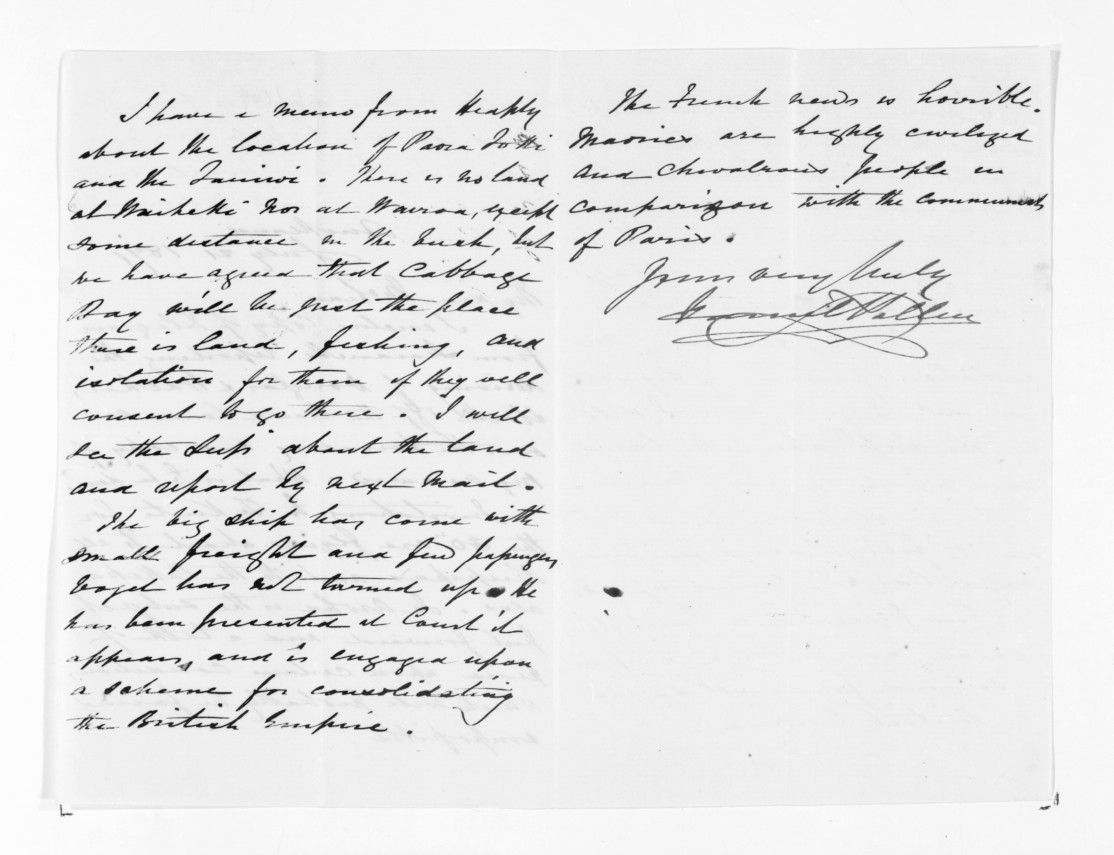 I have a memo from Heaphy
about the location of Paora Toki
and the Tainui. There is no land
at Waiheki nor at Wairoa, except
some distance in the bush, but
we have agreed that Cabbage
Bay will be just the place
there is land, fishing, and
isolation for them if they will
consent to go there. I will
see the Supt about the land
and report by next mail.
The big ship has come with
small freight and few passengers
Vogel has not turned up. He
has been presented at Court it
appears, and is engaged upon
a scheme for consolidating
the British Empire.
The French news is horrible.
Maories are highly civilized
and chivalrous people in
comparison with the communists
of Paris.
Yours very truly
Daniel Pollen